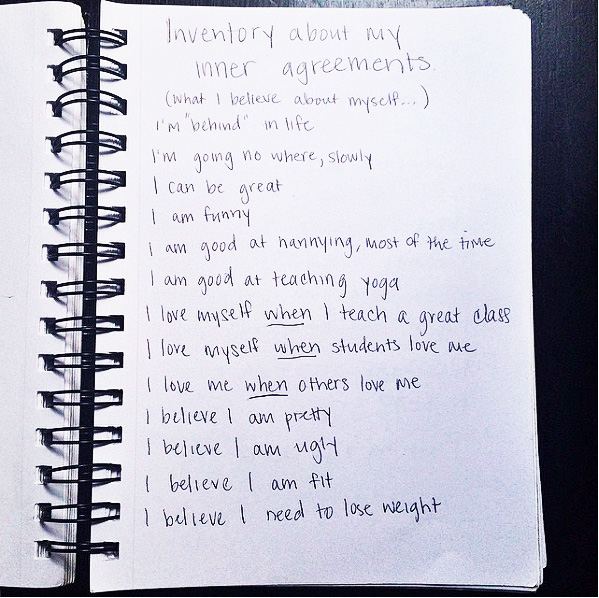 Inventory about my
inner agreements.
(what I believe about myself...)
I'm "behind" in life
I'm going no where, slowly
I can be great
I am funny
I am good at nannying, most of the time
I am good at teaching yoga
I love myself when I teach a great class
I love myself when students love me
I love me when others love me
I believe I am pretty
I believe I am ugly
I believe I am fit
I believe I need to lose weight